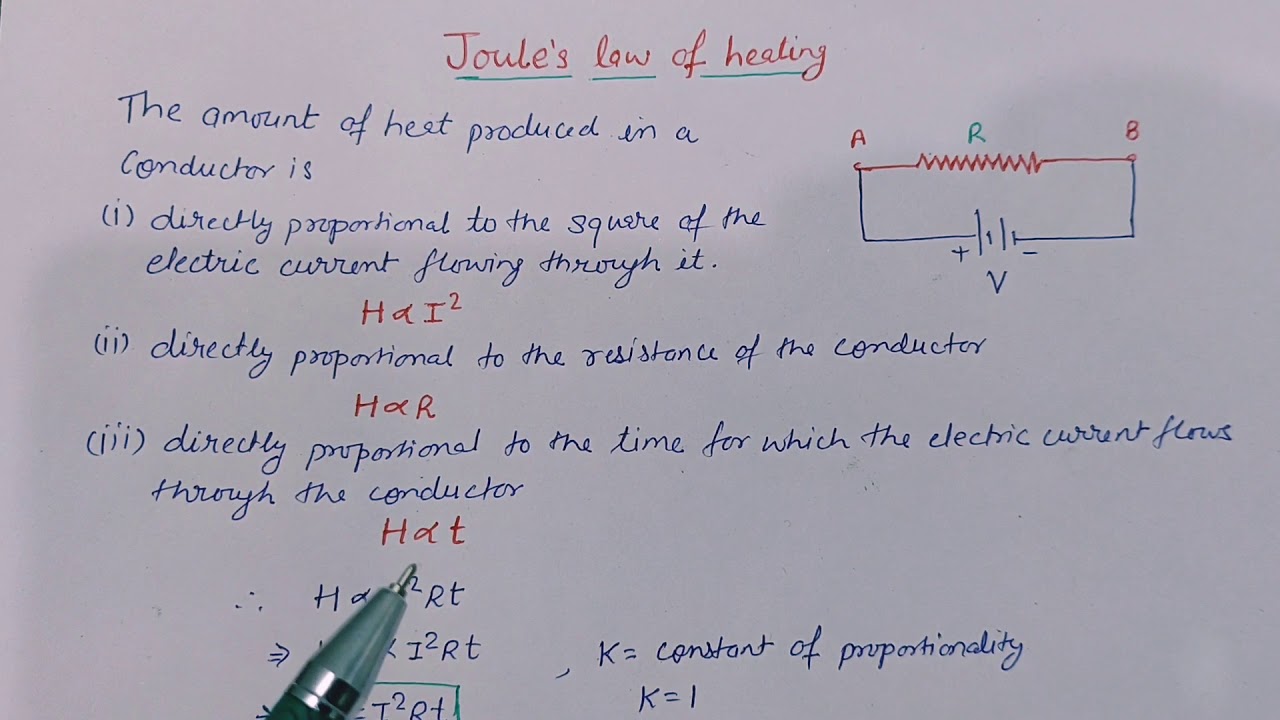 Joule's law of heating
The amount of heat produced in a
Conductor is
(i) directly proportional to the square of the
electric current flowing through it.
H ∝ I²
(ii) directly proportional to the resistance of the conductor
H ∝ R
(iii) directly proportional to the time for which the electric current flows
through the conductor
H ∝ t
∴ H ∝ ²Rt
⇒ I²Rt , K = constant of proportionality
K = 1
= I²Rt
A R B
+ −
V